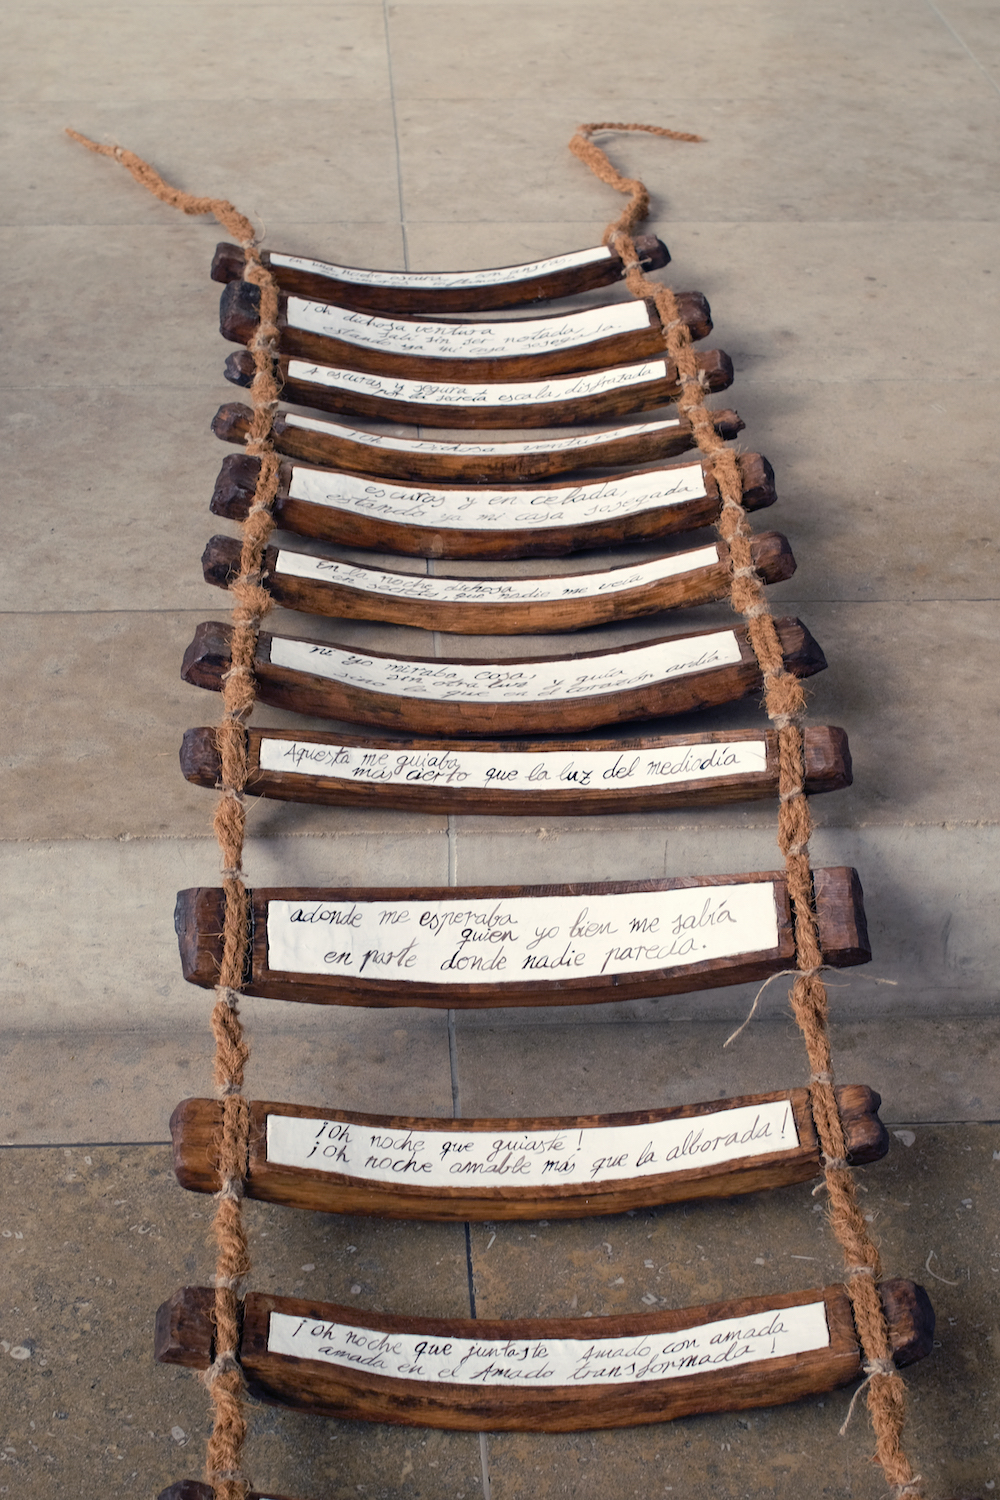 en una noche escura con ansias,
¡Oh dichosa ventura
salí sin ser notada
estando ya mi casa sosegada.
A escuras y segura
por la secreta escala, disfrazada
¡Oh dichosa ventura!
escuras y en celada,
estando ya mi casa sosegada.
En la noche dichosa
en secreto, que nadie me veía
ni yo miraba cosa,
sin otra luz y guía
sino la que en el corazón ardía.
Aquesta me guiaba
más cierto que la luz del mediodía
adonde me esperaba
quien yo bien me sabía
en parte donde nadie parecía.
¡Oh noche que guiaste!
¡Oh noche amable más que la alborada!
¡Oh noche que juntaste Amado con amada
amada en el Amado transformada!